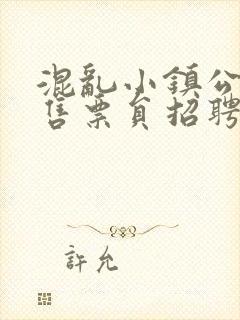 混亂小鎮公
售票員招聘
許允